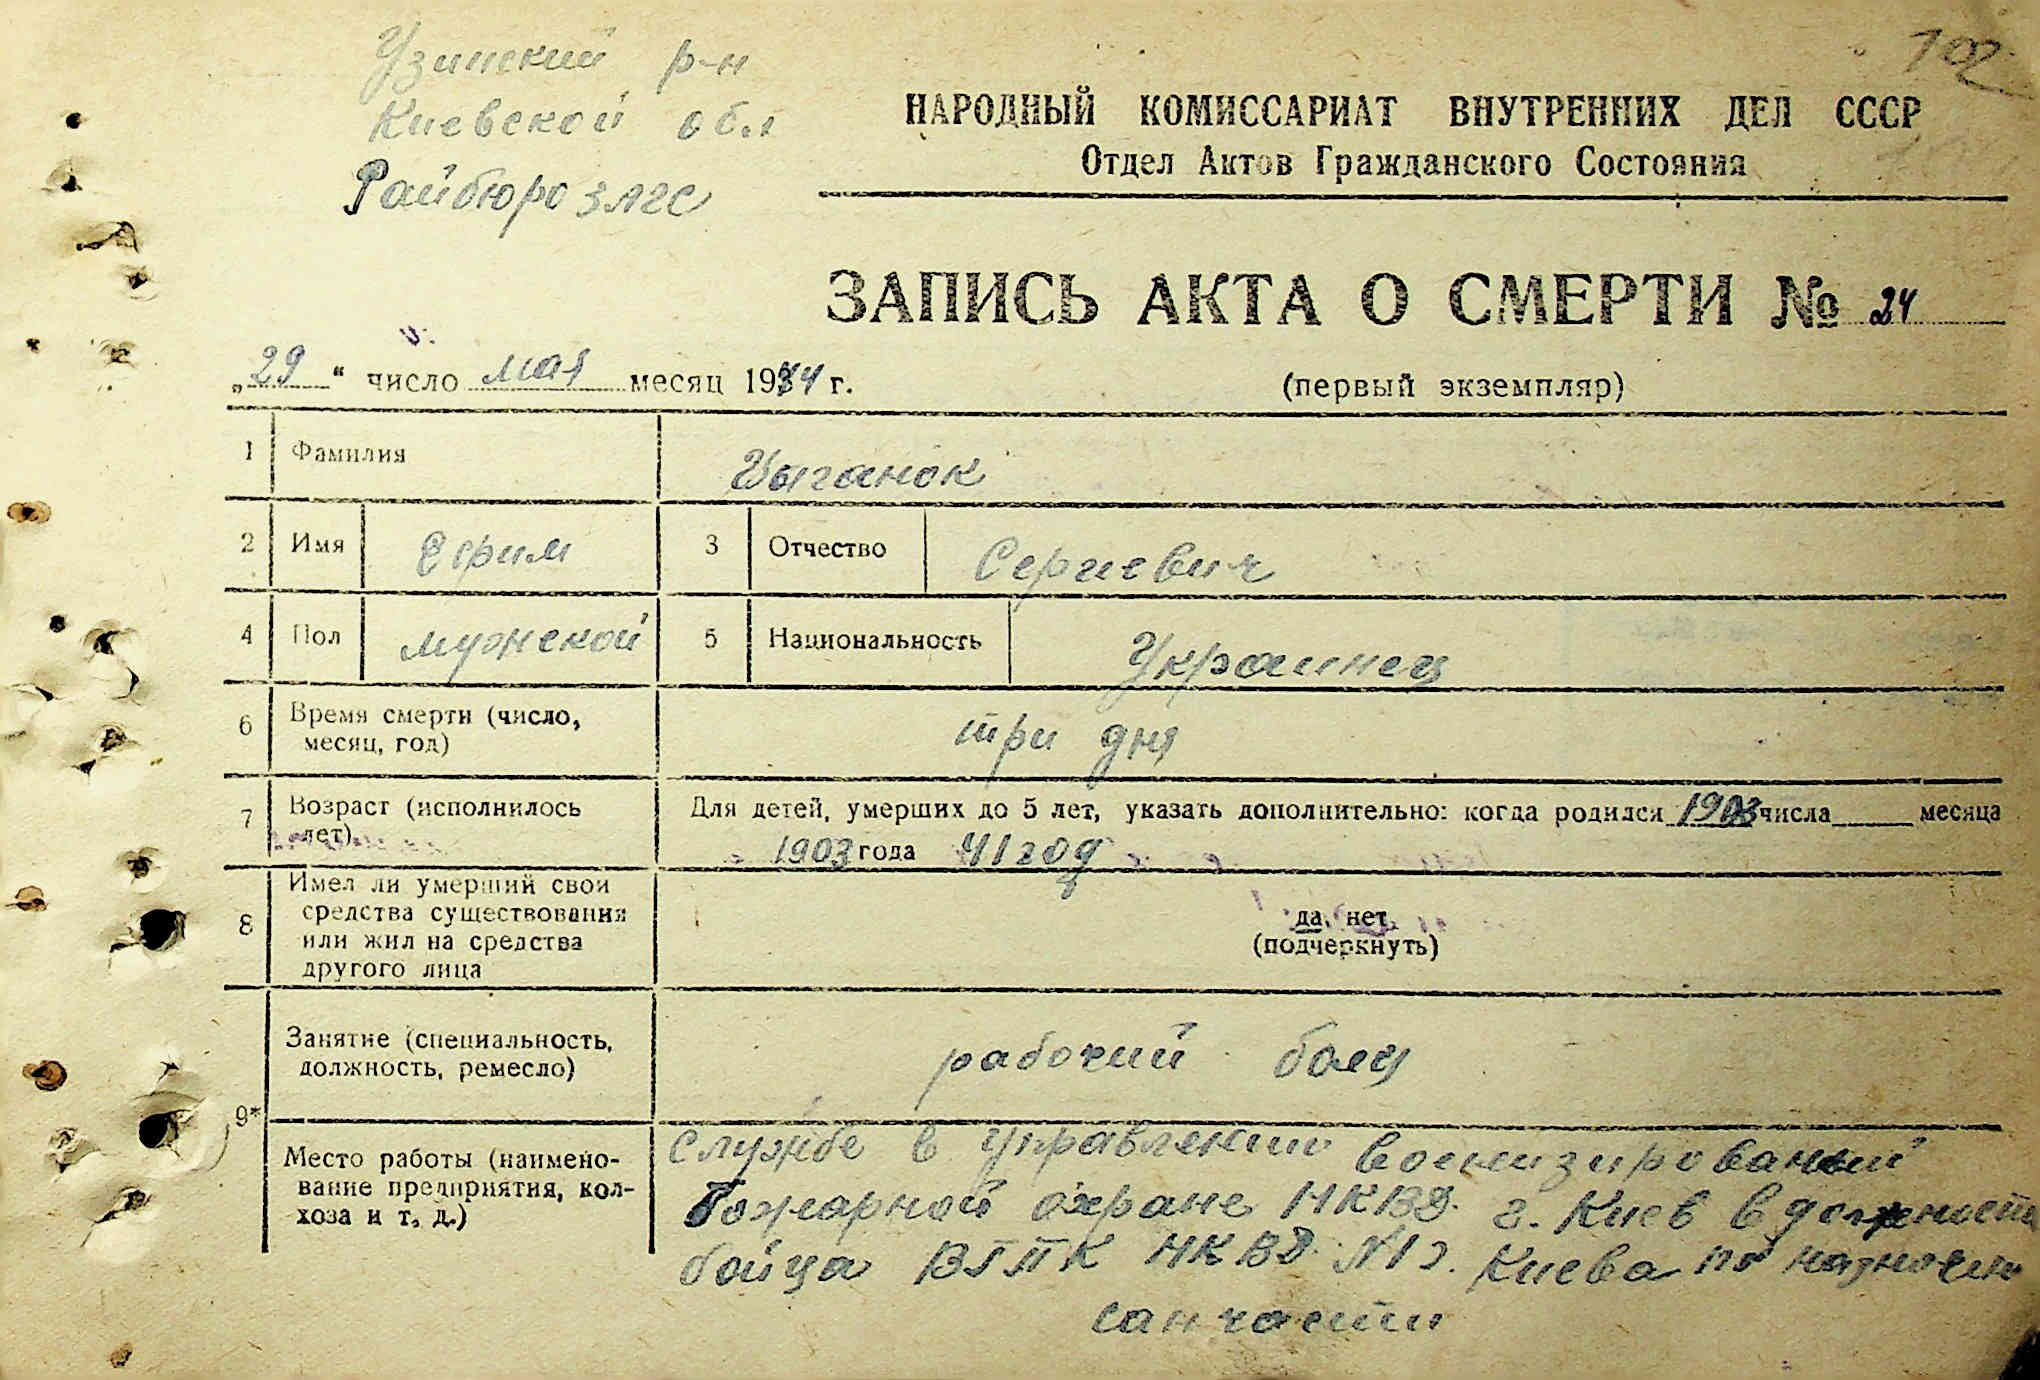 102
Узинский р-н
Киевской обл
Райбюро загс
НАРОДНЫЙ КОМИССАРИАТ ВНУТРЕННИХ ДЕЛ СССР
Отдел Актов Гражданского Состояния
ЗАПИСЬ АКТА О СМЕРТИ № 24
„29“ число мая месяц 1944 г.
(первый экземпляр)
1 Фамилия Цыганок
2 Имя Ефим 3 Отчество Сергиевич
4 Пол мужской 5 Национальность Украинец
6 Время смерти (число, месяц, год) три дня
7 Возраст (исполнилось лет) Для детей, умерших до 5 лет, указать дополнительно: когда родился 1903 числа месяца
1903 года 41 год
8 Имел ли умерший свои средства существования или жил на средства другого лица
да, нет
(подчеркнуть)
9*
Занятие (специальность, должность, ремесло) рабочий боец
Место работы (наименование предприятия, колхоза и т. д.)
службе в управлению военизированый
Пожарной охране НКВД. г. Киев в должности
бойца ВГПК НКВД N1 г. Киева по
санчасти